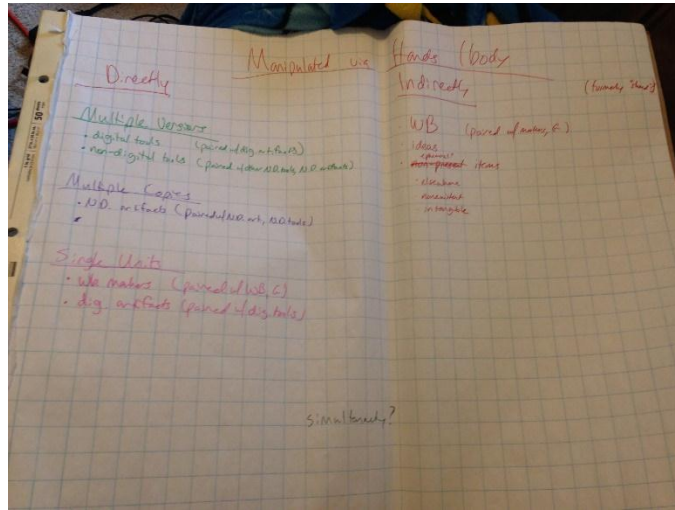 Manipulated via Hands / body
Directly
Multiple Versions
• digital tools (paired w/ dig. artifacts)
• non-digital tools (paired w/ other N.D. tools, N.D. artifacts)
Multiple Copies
• N.D. artifacts (paired w/ N.D. art, N.D. tools)
•
Single Units
• WB makers (paired w/ WB, C)
• dig. artifacts (paired w/ dig. tools)
Indirectly
(formerly
• WB (paired w/
ideas
• items
• elsewhere
nonexistent
intangible
simultaneously?
50